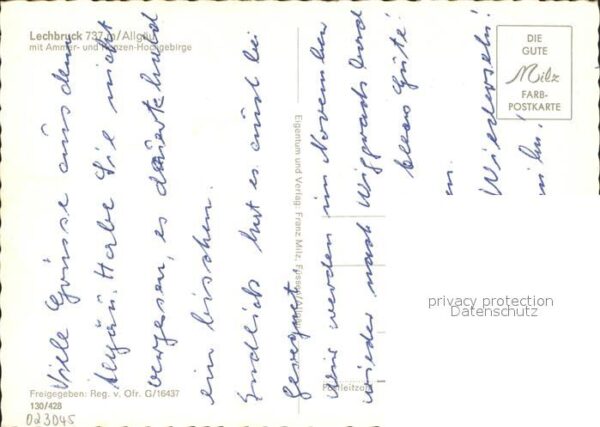 Lechbruck 737 m/Allgäu
mit Ammer- und Hochgebirge
Viele Grüsse aus dem
Allgäu. Habe Sie nicht
vergessen, es dauerte halt
ein bisschen.
Endlich hat es auch bei
geregnet.
Wir werden im November
wieder nach
Alles Gute!
Wiederseh'n!
Eigentum und Verlag: Franz Milz, Füssen/Allgäu
DIE
GUTE
Milz
FARB-
POSTKARTE
privacy protection
Datenschutz
Postleitzahl
Freigegeben: Reg. v. Ofr. G/16437
130/428
023045